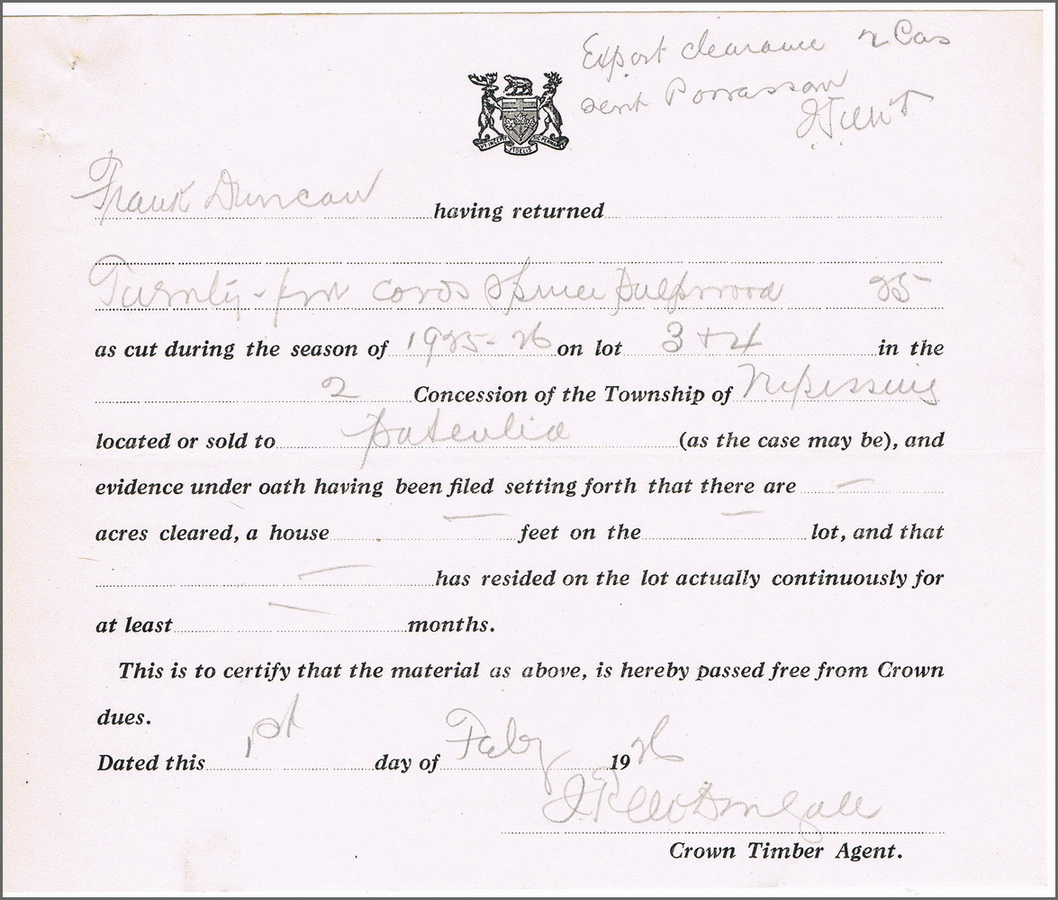 Export clearance 2 Cas
sent Porrassan
Frank Duncan having returned
Twenty-five cords Spruce Pulpwood 25
as cut during the season of 1925-26 on lot 3 + 4 in the
2 Concession of the Township of Nipissing
located or sold to (as the case may be), and
evidence under oath having been filed setting forth that there are —
acres cleared, a house — feet on the — lot, and that
— has resided on the lot actually continuously for
at least — months.
This is to certify that the material as above, is hereby passed free from Crown
dues.
Dated this 1st day of Feby 1926
Crown Timber Agent.